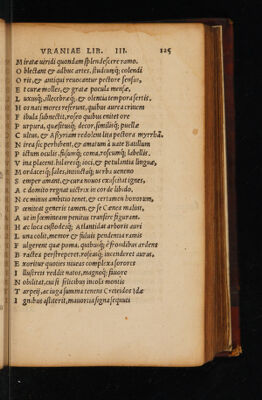 VRANIAE LIB. III. 125
M iratæ uiridi quondam splendescere ramo.
O blectant & adhuc artes, studiumq; colendi
O ris, & antiqui reuocantur pectore sensus,
E t curæ molles, & gratæ pocula mensæ,
L uxusq;, illecebræq;, & olentia tempora sertis,
H os nati mores referunt, quibus aurea crinem
F ibula subnectit, roseo quibus enitet ore
P urpura, quæsitusq; decor, similisq; puellæ
C ultus, & Assyriam redolens lita pectora myrrhā.
N irea sic perhibent, & amatum à uate Batillum
P ictum oculis, fusumq; coma, roseumq; labellis.
V ina placent, hilaresq; ioci, & petulantia linguæ,
M ordacesq; sales, inuictaq; turba ueneno
S emper amant, et cura nouos ex ignibus ignes,
A c domito regnat uictrix in corde libido.
N ec minus ambitio tenet, & certamen honorum,
P œnitet generis tamen, & se Cænea malint,
A ut in fœmineam penitus transire figuram.
H æc loca custodesq; Atlantidas arboris auri
L una colit, memor & fuluis pendentia ramis
F ulgerent quæ poma, quibusq; è frondibus ardens
B ractea perstreperet, roseasq; incenderet auras,
E xoritur quoties niueas complexa sorores
I llustres reddit natos, magnoq; fauore
N obilitat, cui si felicibus incola montis
T arpeij, ac iuga summa tenens Creteidos Idæ
I gnibus astiterit, maioraq; signa sequuti